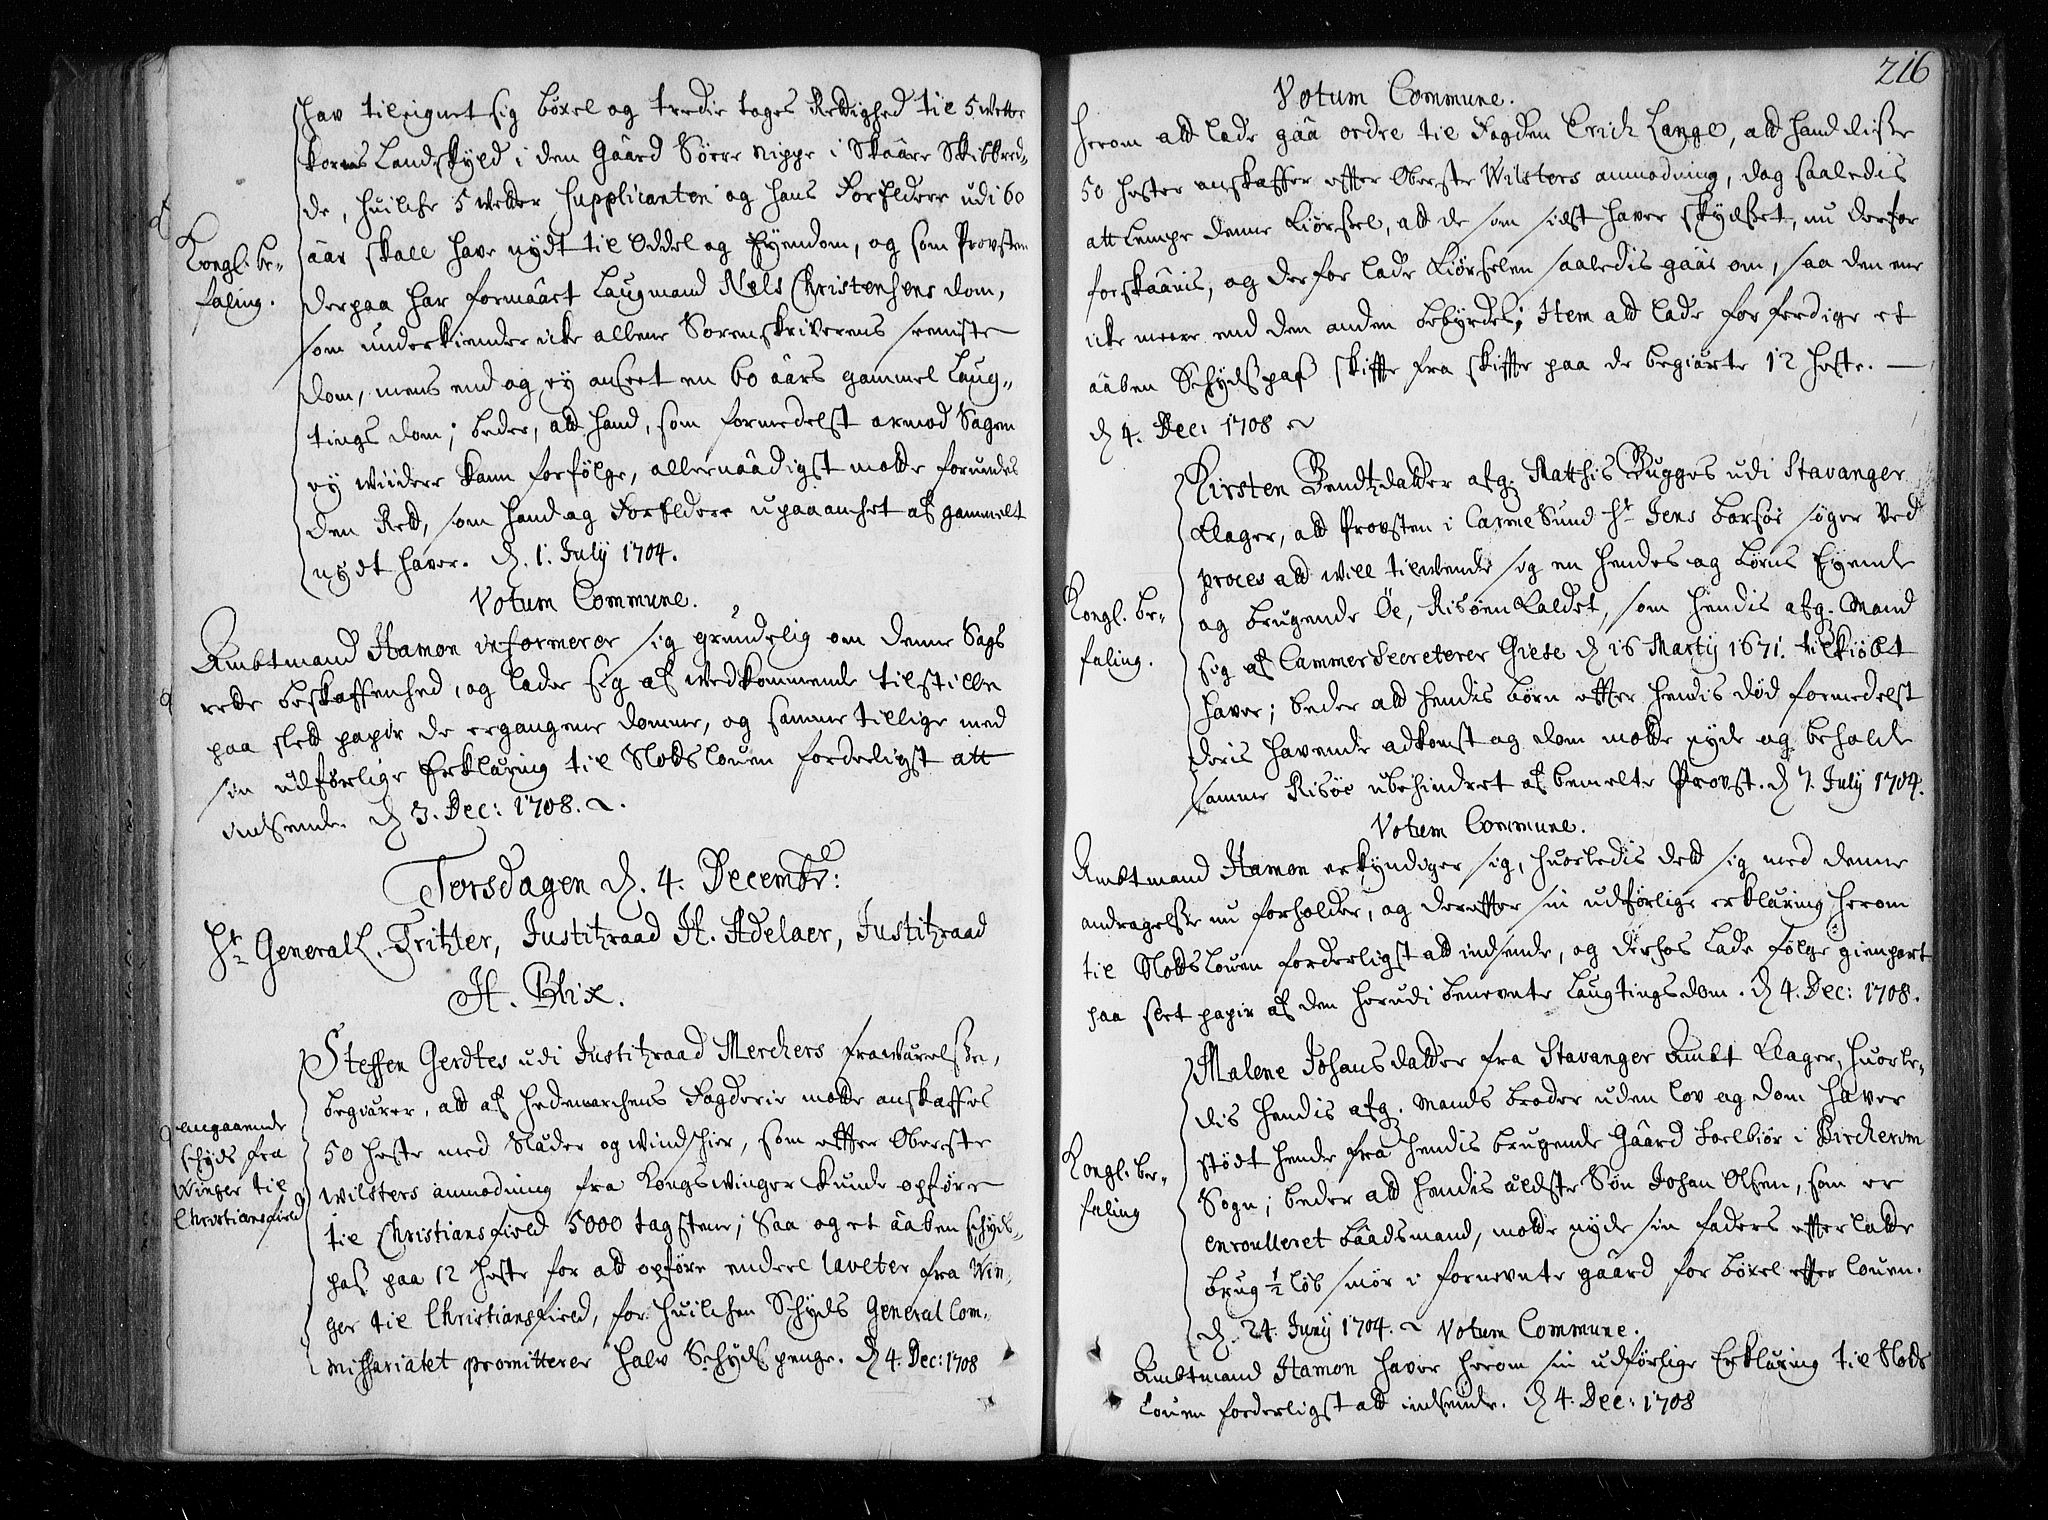 har tileignet sig bøxel og tredie tages Rettighed til 5 wetter
korns Landskyld i den Gaard Nørre Nippe i Skaare Skibbred-
de, huilche 5 wetter Supplicanten og hans Forfeldere udi 60
Kongl: be-
faling.
aar skall have nydt til Oddel og Eyendom, og som Provsten
derpaa har formaaet Laugmand Niels Christensens dom,
som underkiender icke allene Sorenskriverens seeniste
dom, mens end og ey anseet en 60 aars gammel Laug-
tings dom; beder, att hand, som formedelst armod Sagen
ey widere kann forfølge, allernaadigst motte forundes
den Rett, som hand og Forfeldere upaaanket af gammelt
nydt haver. d. 1. July 1704.
Votum Commune.
Ambtmand Hamon informerer sig grundelig om denne Sags
rette beskaffenhed, og lader sig af wedkommende tilstille
paa slett papir de ergangene domme, og samme tillige med
sin udførlige Erklæring til Slotzlouen forderligst att
indsende. d 3. Dec: 1708.
Torsdagen d. 4. Decembr:
Hr General L. Tritzler, Justitzraad H. Adelaer, Justitzraad
H. Blix.
Steffen Gerdtes udi Justitzraad Merckers frawærelße,
begiærer, att af Hedemarchens Fogderie motte anskaffes
angaaende
schyds fra
Winger til
Christiansfield
50 heste med Slæder og windschier, som effter Oberste
Wilsters anmodning fra Kongswinger kunde opføre
til Christiansfield 5000 tagstene; Saa og et aaben schyds-
paß paa 12 heste for att opføre endeel laveter fra Win-
ger til Christiansfield, for huilchen Schyds General Com-
mißariatet promitterer halv Schyds penge. d 4. Dec: 1708
216
Votum Commune.
Herom att lade gaa ordre til Fogden Erich Lange, att hand disse
50 hester anskaffer effter Oberste Wilsters anmodning, dog saaledis
att lempe denne Kiørsel, att de som sidst haver skydset, nu derfor
forskaanis, og derfor lade Kiørselen saaledis gaae om, saa den ene
icke meere end den anden bebyrdes; Item att lade forferdige et
aaben Schydspaß skiffte fra skiffte paa de begiærte 12 heste. —
d 4. Dec: 1708
Kirsten Bendtzdatter afg. Matthis Bugges udi Stavanger
klager, att Provsten i CarmeSund Hr Jens Barsøe søger ved
proces att will tilwende sig en hendes og børns Eyende
Kongl. be-
faling.
og brugende Øe, Risøen kaldet, som hendis afg. Mand
sig af Cammer Secreterer Giese d 16 Martij 1671. tilkiøbt
haver; beder att hendis børn effter hendis død formedelst
deris havende adkomst og dom motte nyde og beholde
samme Risøe ubehindret af bemelte Provst. d 7. July 1704.
Votum Commune.
Ambtmand Hamon erkyndiger sig, huorledis dett sig med denne
andragelße nu forholder, og dereffter sin udførlige erklæring herom
til Slotzlouen forderligst att indsende, og derhos lade følge gienpart
paa slet papir af den herudi benevnte Laugtingsdom. d 4. Dec: 1708.
Malene Johansdatter fra Stavanger Ambt klager, huorle-
dis hendis afg. Mands broder uden lov og dom haver
Kongl: be-
faling
stødt hende fra hendis brugende Gaard Toelbiør i Bircherem
Sogn; beder att hendis ældste Søn Johan Olsen, som er
enroulleret baadsmand, motte nyde sin faders effterlatte
brug ½ løb smør i fornevnte gaard for bøxel effter louen.
d. 24. Juny 1704. Votum Commune.
Ambtmand Hamon haver herom sin udførlige Erklæring til Slots
Louen forderligst att indsende. d 4. Dec: 1708